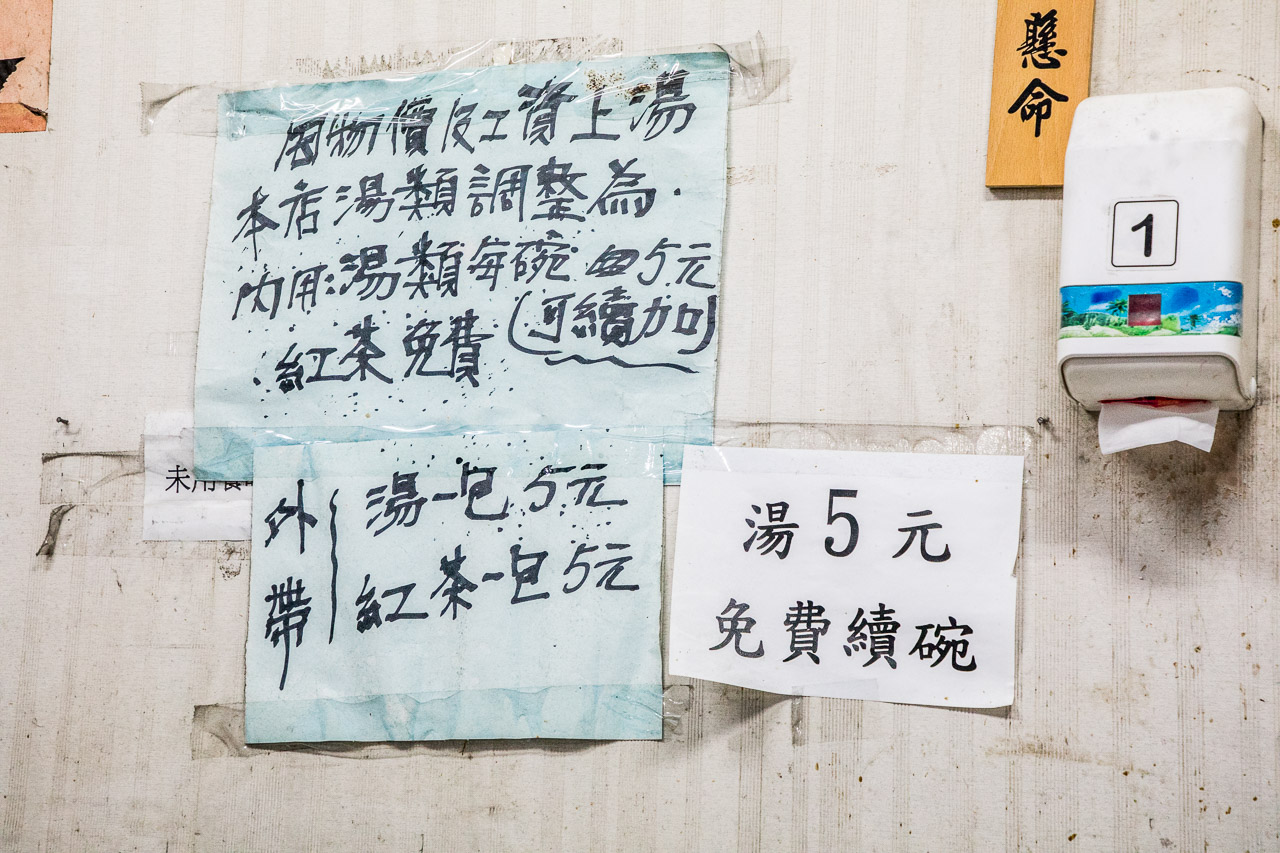 因物價及工資上湯
本店湯類調整為.
內用:湯類每碗 5元
:紅茶免費(可續加)
未用餐
外帶
湯一包 5元
紅茶一包 5元
湯5元
免費續碗
懸命
1